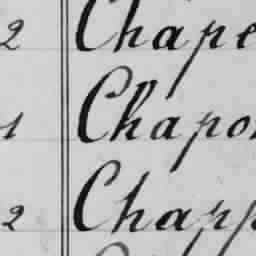 2 Chape
1 Chapo
2 Chapp